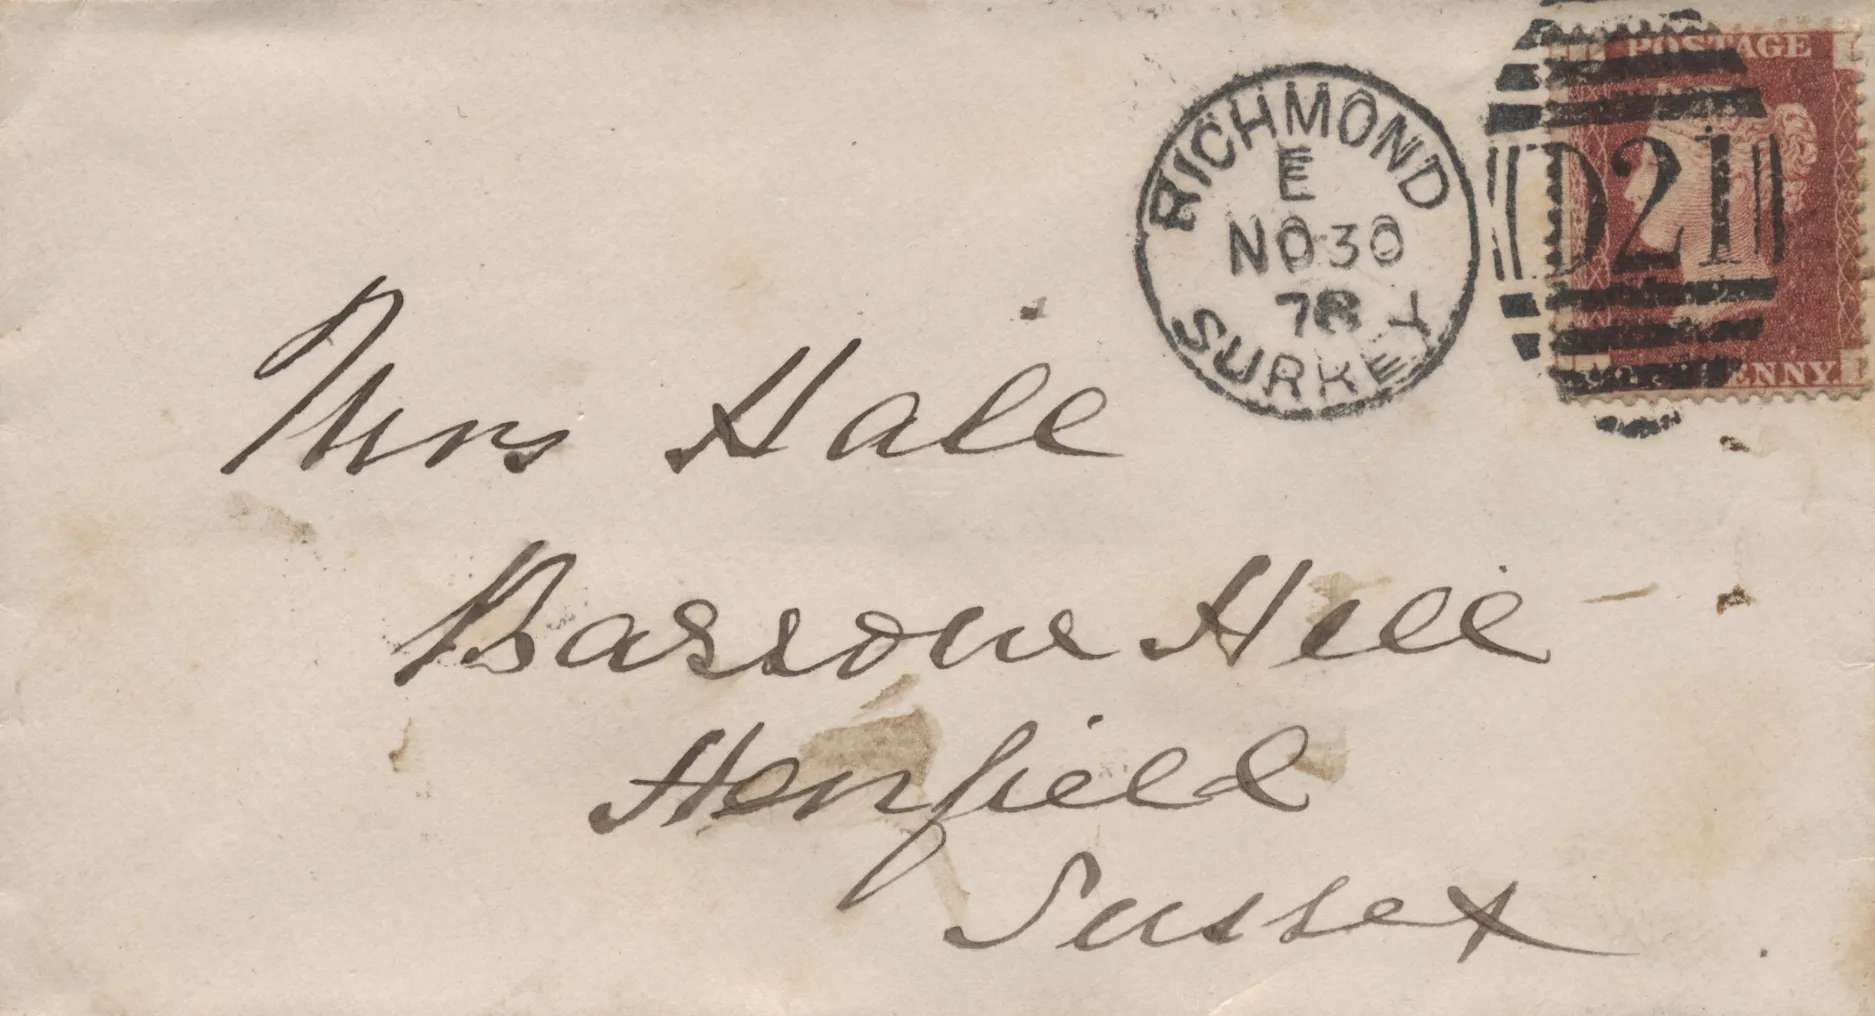 POSTAGE
RICHMOND
E
NO 30
78
SURREY
D21
PENNY
Mrs Hall
Barrow Hill
Henfield
Sussex